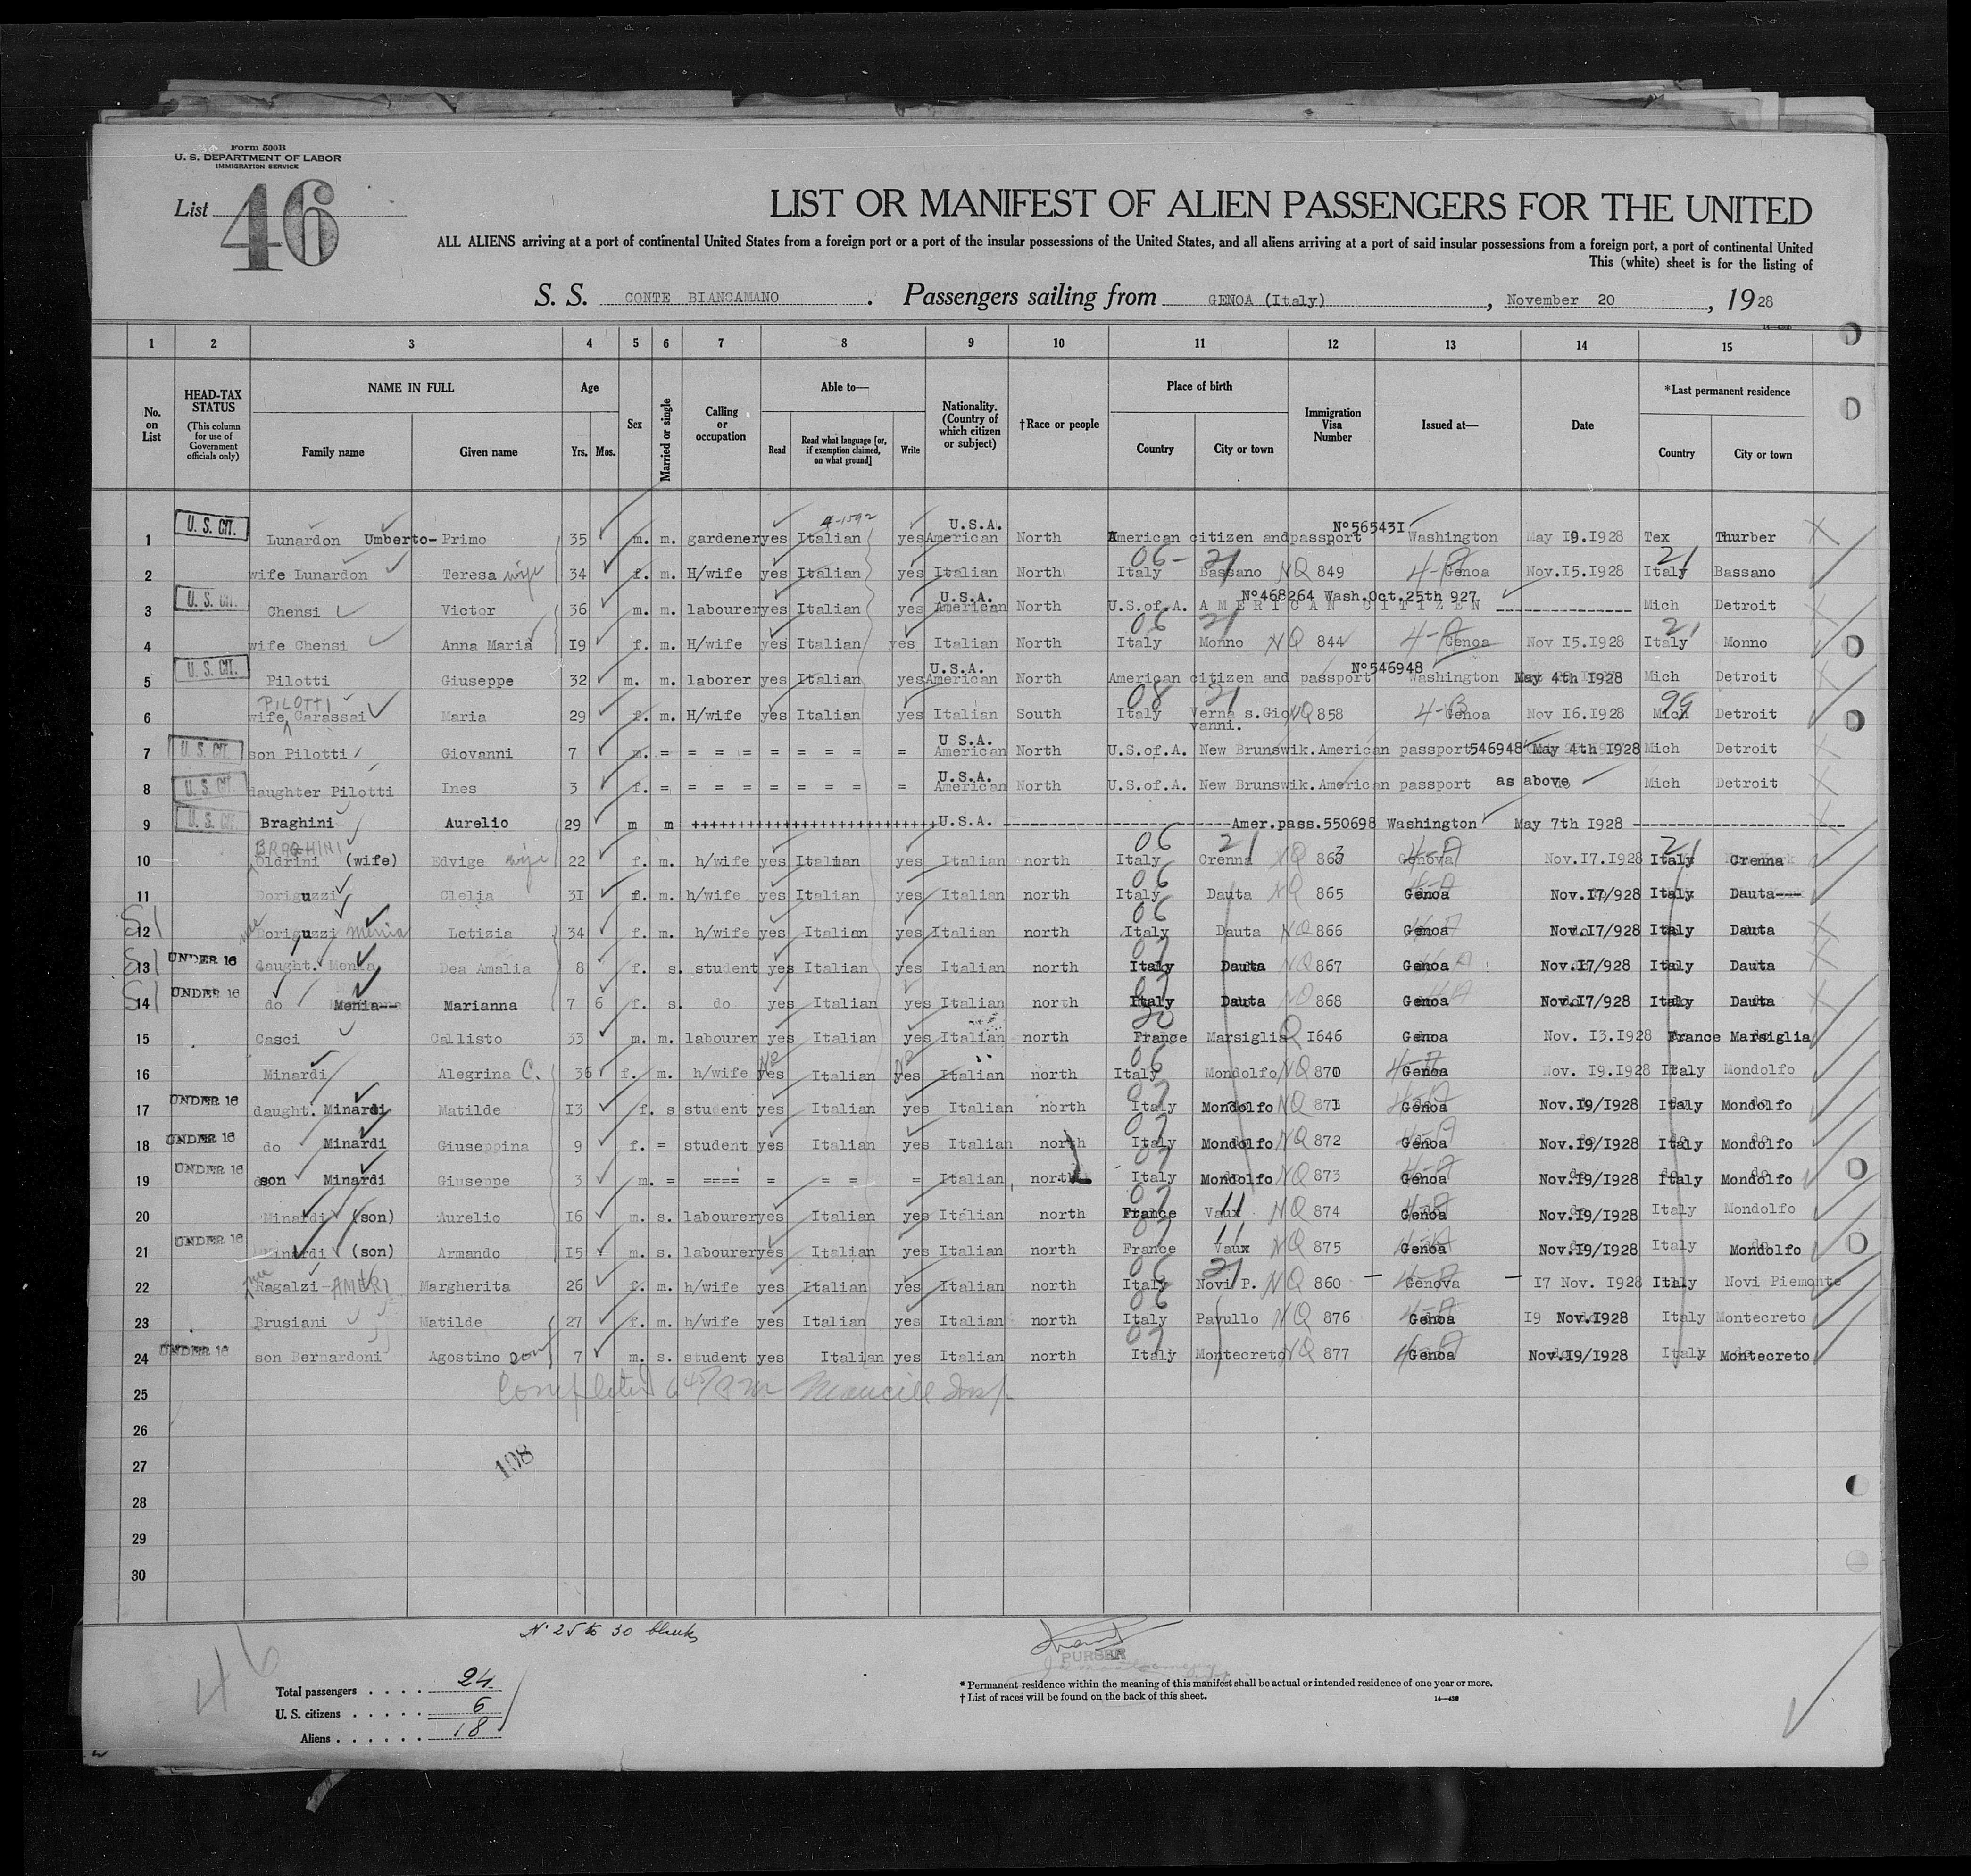 Form 500B
U. S. DEPARTMENT OF LABOR
IMMIGRATION SERVICE
List 46
LIST OR MANIFEST OF ALIEN PASSENGERS FOR THE UNITED
ALL ALIENS arriving at a port of continental United States from a foreign port or a port of the insular possessions of the United States, and all aliens arriving at a port of said insular possessions from a foreign port, a port of continental United
This (white) sheet is for the listing of
S. S. CONTE BIANCAMANO . Passengers sailing from GENOA (Italy) , November 20 , 1928
1 2 3 4 5 6 7 8 9 10 11 12 13 14 15
No. on List
HEAD-TAX STATUS (This column for use of Government officials only)
NAME IN FULL Family name Given name
Age Yrs. Mos.
Sex
Married or single
Calling or occupation
Able to— Read Read what language [or, if exemption claimed, on what ground] Write
Nationality. (Country of which citizen or subject)
†Race or people
Place of birth Country City or town
Immigration Visa Number
Issued at—
Date
*Last permanent residence Country City or town
4-1592 U.S.A. Nº565431
1 U. S. CIT. Lunardon Umberto-Primo 35 m. m. gardener yes Italian yes American North American citizen and passport Washington May 19.1928 Tex Thurber
06- 21 21
2 wife Lunardon Teresa wife 34 f. m. H/wife yes Italian yes Italian North Italy Bassano NQ 849 4-A Genoa Nov.15.1928 Italy Bassano
U.S.A. Nº468264 Wash.Oct.25th 927
3 U. S. CIT. Chensi Victor 36 m. m. labourer yes Italian yes American North U.S.of.A. AMERICAN CITIZEN --------------- Mich Detroit
06 21 21
4 wife Chensi Anna Maria 19 f. m. H/wife yes Italian yes Italian North Italy Monno NQ 844 4-A Genoa Nov 15.1928 Italy Monno
U.S.A. Nº546948
5 U. S. CIT. Pilotti Giuseppe 32 m. m. laborer yes Italian yes American North American citizen and passport Washington May 4th 1928 Mich Detroit
PILOTTI 08 21 99
6 wife Carassai Maria 29 f. m. H/wife yes Italian yes Italian South Italy Verna s.Giovanni. NQ 858 4-B Genoa Nov 16.1928 Mich Detroit
U S.A.
7 U. S. CIT. son Pilotti Giovanni 7 m. = = = = = = = = = = American North U.S.of.A. New Brunswik. American passport 546948 May 4th 1928 Mich Detroit
U.S.A.
8 U. S. CIT. daughter Pilotti Ines 3 f. = = = = = = = = = = American North U.S.of.A. New Brunswik. American passport as above Mich Detroit
9 U. S. CIT Braghini Aurelio 29 m m +++++++++++++++++++++++++++ U.S.A. ------------------------- Amer.pass.550698 Washington May 7th 1928 -----------------------
BRAGHINI 06 21 21
10 Oldrini (wife) Edvige wife 22 f. m. h/wife yes Italian yes Italian north Italy Crenna NQ 863 4-A Genova Nov.17.1928 Italy Crenna
06
11 Doriguzzi Clelia 31 f. m. h/wife yes Italian yes Italian north Italy Dauta NQ 865 Genoa Nov.17/928 Italy Dauta---
06
12 nee Doriguzzi Menia Letizia 34 f. m. h/wife yes Italian yes Italian north Italy Dauta NQ 866 Genoa Nov.17/928 Italy Dauta
07
13 UNDER 16 daught. Menia Dea Amalia 8 f. s. student yes Italian yes Italian north Italy Dauta NQ 867 Genoa Nov.17/928 Italy Dauta
07
14 UNDER 16 do Menia-- Marianna 7 6 f. s. do yes Italian yes Italian north Italy Dauta NQ 868 Genoa Nov.17/928 Italy Dauta
20
15 Casci Callisto 33 m. m. labourer yes Italian yes Italian north France Marsiglia Q 1646 Genoa Nov. 13.1928 France Marsiglia
No No 06
16 Minardi Alegrina C. 36 f. m. h/wife yes Italian yes Italian north Italy Mondolfo NQ 870 4-A Genoa Nov. 19.1928 Italy Mondolfo
07
17 UNDER 16 daught. Minardi Matilde 13 f. s student yes Italian yes Italian north Italy Mondolfo NQ 871 4-A Genoa Nov.19/1928 Italy Mondolfo
07
18 UNDER 16 do Minardi Giuseppina 9 f. = student yes Italian yes Italian north Italy Mondolfo NQ 872 4-A Genoa Nov.19/1928 Italy Mondolfo
07
19 UNDER 16 son Minardi Giuseppe 3 m. = ==== = = = = Italian north Italy Mondolfo NQ 873 4-A Genoa Nov.19/1928 Italy Mondolfo
07 11
20 Minardi (son) Aurelio 16 m. s. labourer yes Italian yes Italian north France Vaux NQ 874 4-A Genoa Nov.19/1928 Italy Mondolfo
07 11
21 UNDER 16 Minardi (son) Armando 15 m. s. labourer yes Italian yes Italian north France Vaux NQ 875 4-A Genoa Nov.19/1928 Italy Mondolfo
06 21
22 nee Ragalzi-AMERI Margherita 26 f. m. h/wife yes Italian yes Italian north Italy Novi P. NQ 860 4-A Genova 17 Nov. 1928 Italy Novi Piemonte
06
23 Brusiani Matilde 27 f. m. h/wife yes Italian yes Italian north Italy Pavullo NQ 876 4-A Genoa 19 Nov.1928 Italy Montecreto
07
24 UNDER 16 son Bernardoni Agostino son 7 m. s. student yes Italian yes Italian north Italy Montecreto NQ 877 4-A Genoa Nov.19/1928 Italy Montecreto
25 Completed
26
27 198
28
29
30
Nº 25 to 30 blank
46
PURSER
Total passengers . . . . 24
U. S. citizens . . . . . 6
Aliens . . . . . . 18
* Permanent residence within the meaning of this manifest shall be actual or intended residence of one year or more.
† List of races will be found on the back of this sheet.